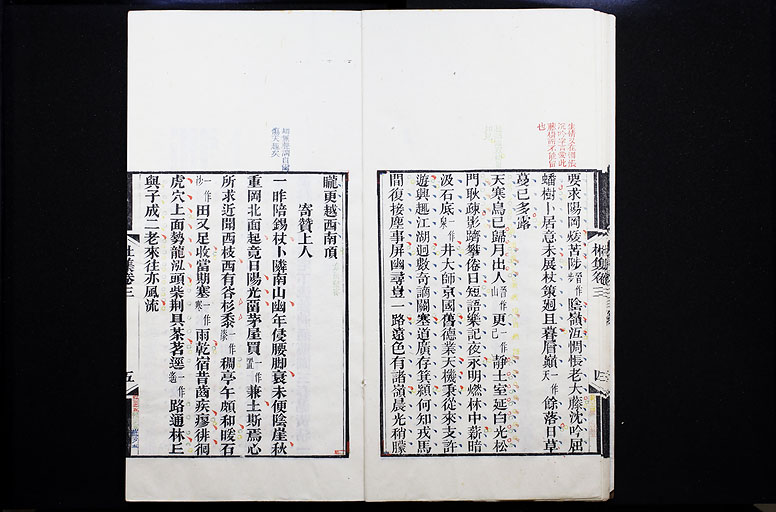 要求陽岡煖苦陟陰嶺沍惆悵老大藤沈吟屈
蟠樹卜居意未展杖策廻且暮層巔一作天餘落日草
蔓已多露
天寒鳥已歸月出人一作山更一作已靜土室延白光松
門耿疎影躋攀倦日短語樂記夜永明燃林中薪暗
汲石底一作泉井大師京國舊德業天機秉從來支許
遊興趣江湖迥數奇謫關塞道廣存箕潁何知戎馬
間復接塵事屏幽尋豈一路遠色有諸嶺晨光稍朦
杜集卷三
四
朧更越西南頂
寄贊上人
一昨陪錫杖卜隣南山幽年侵腰脚衰未便陰崖秋
重岡北面起竟日陽光留茅屋買一作置兼土斯焉心
所求近聞西枝西有谷杉黍一作漆稠亭午頗和暖石
一作沙田又足收當期塞一作寒雨乾宿昔齒疾瘳徘徊
虎穴上面勢龍泓頭柴荆具茶茗逕一作遙路通林丘
與子成二老來往亦風流
杜集卷三
五